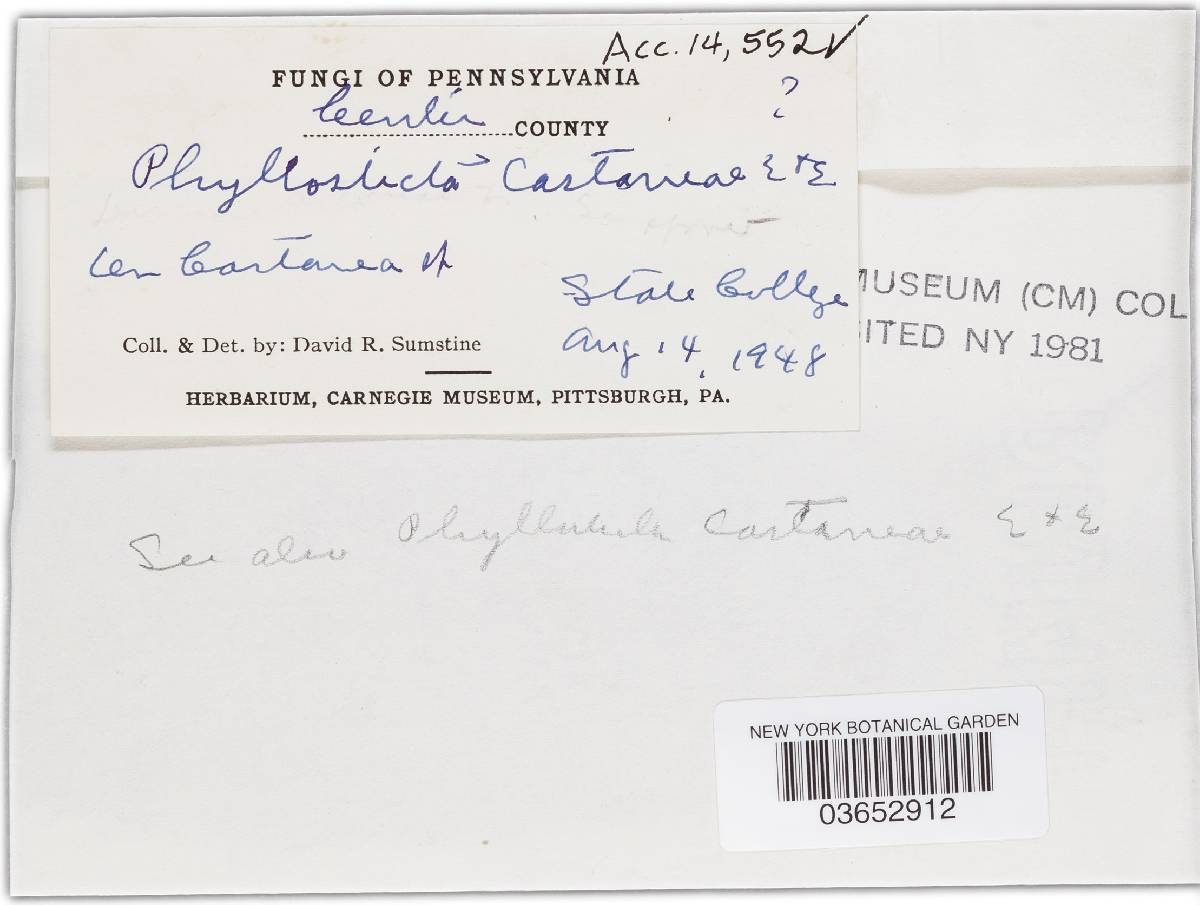 Acc. 14,552 ✓
FUNGI OF PENNSYLVANIA
?
Centre COUNTY
Phyllosticta Castaneae E & E
on Castanea sp
State College
Coll. & Det. by: David R. Sumstine
Aug 14, 1948
HERBARIUM, CARNEGIE MUSEUM, PITTSBURGH, PA.
MUSEUM (CM) COL
ITED NY 1981
See also Phyllosticta Castaneae E & E
NEW YORK BOTANICAL GARDEN
03652912